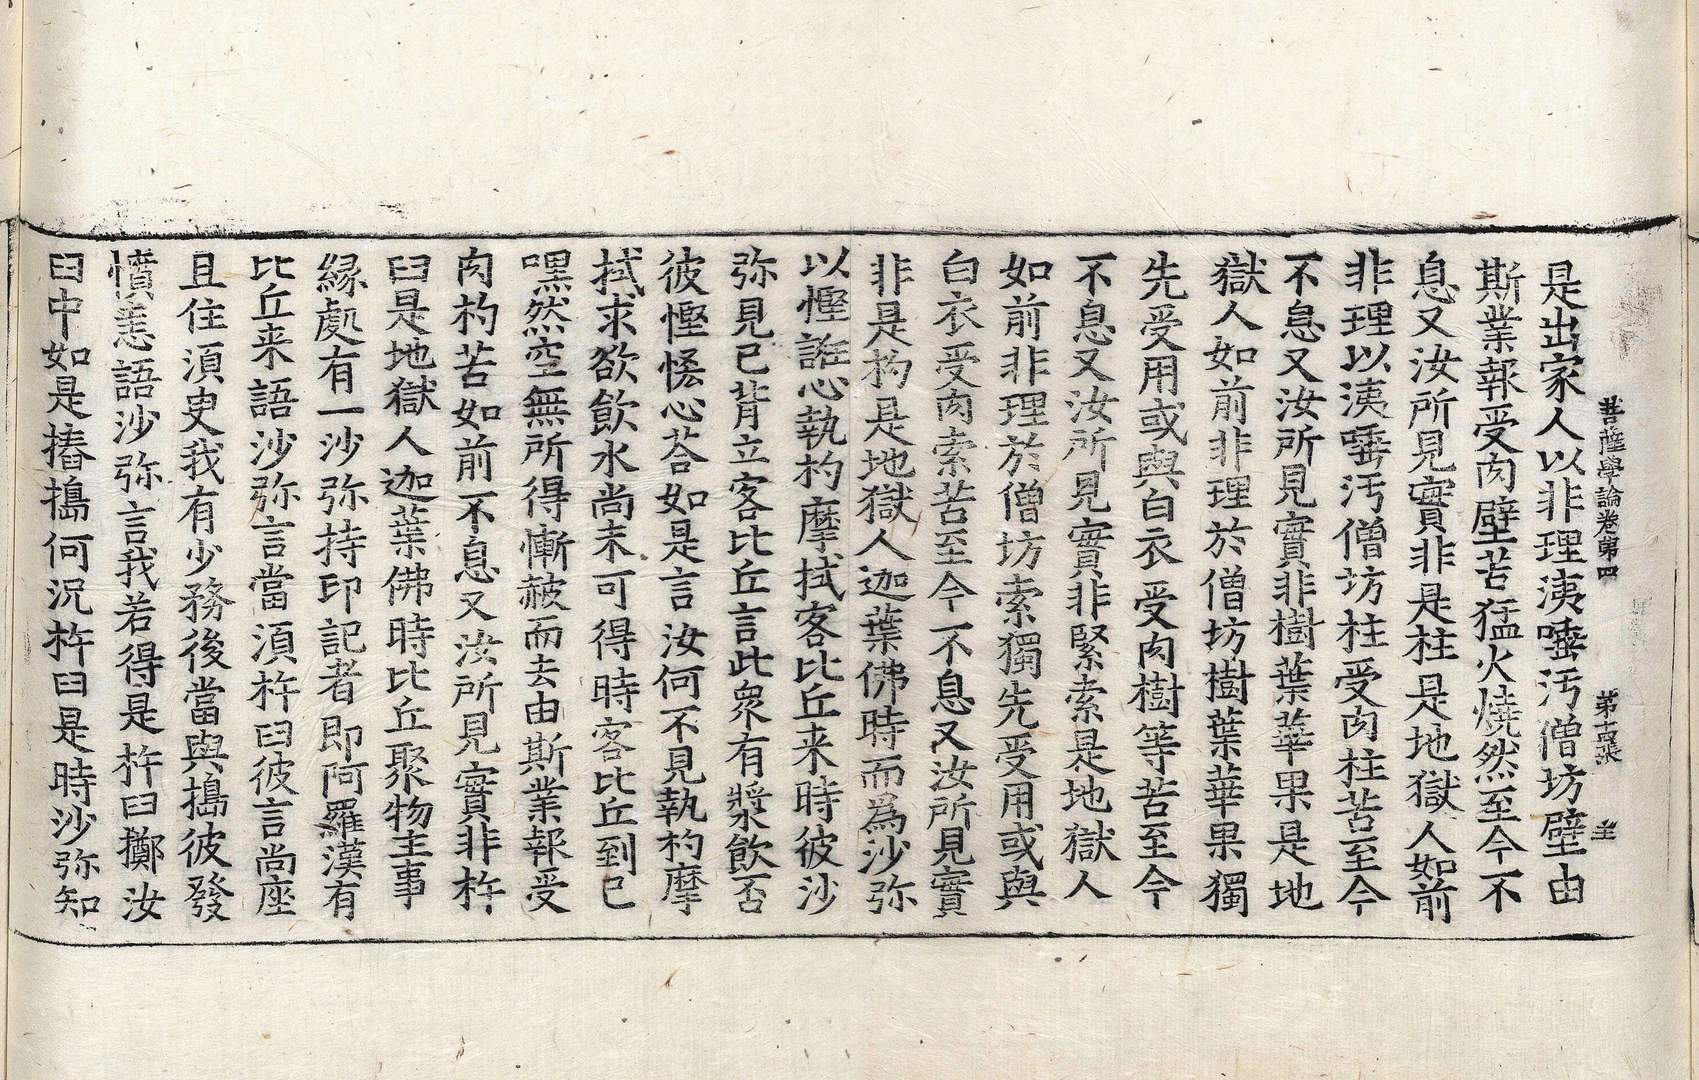 菩薩學論卷第四　第十四張　主
是出家人以非理洟唾汚僧坊壁由
斯業報受肉壁苦猛火燒然至今不
息又汝所見實非是柱是地獄人如前
非理以洟唾汚僧坊柱受肉柱苦至今
不息又汝所見實非樹葉華果是地
獄人如前非理於僧坊樹葉華果獨
先受用或與白衣受肉樹等苦至今
不息又汝所見實非緊索是地獄人
如前非理於僧坊索獨先受用或與
白衣受肉索苦至今不息又汝所見實
非是杓是地獄人迦葉佛時而為沙弥
以慳誑心執杓摩拭客比丘来時彼沙
弥見已背立客比丘言此衆有漿飲否
彼慳悋心荅如是言汝何不見執杓摩
拭求欲飲水尚未可得時客比丘到已
嘿然空無所得慚赧而去由斯業報受
肉杓苦如前不息又汝所見實非杵
臼是地獄人迦葉佛時比丘聚物主事
緣處有一沙弥持印記者即阿羅漢有
比丘来語沙弥言當湏杵臼彼言尚座
且住湏臾我有少務後當與搗彼發
憤恚語沙弥言我若得是杵臼擲汝
臼中如是㨶搗何況杵臼是時沙弥知